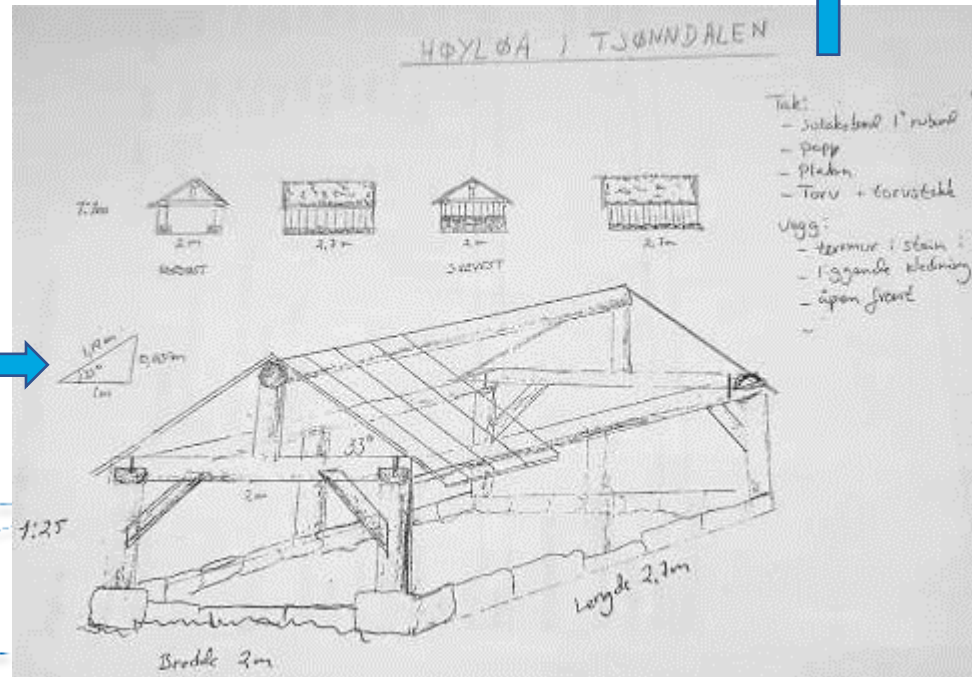 HØYLØA I TJØNNDALEN
Tak:
- sutaksbord 1"
- papp
- Platon
- Torv + torvstokk
Vegg:
- tørrmur i stein
- liggande kledning
- åpen front
-
2m
2,7m
2m
2,7m
NORDØST
SØRVEST
33°
1m
33°
2m
1:25
Lengde 2,7m
Bredde 2m